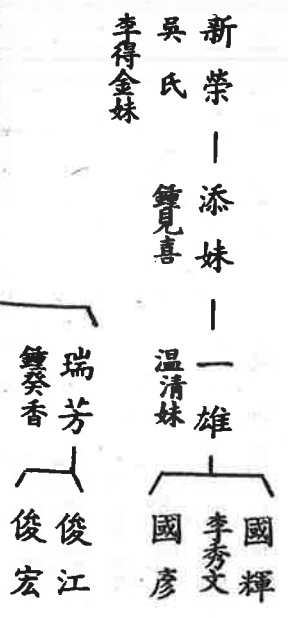 新榮
吳氏
李得金妹
添妹
鍾見喜
一雄
温清妹
國輝
李秀文
國彥
瑞芳
鍾癸香
俊江
俊宏